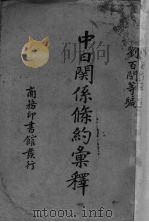 劉百閔等編
中日關係條約彙釋
商務印書館發行